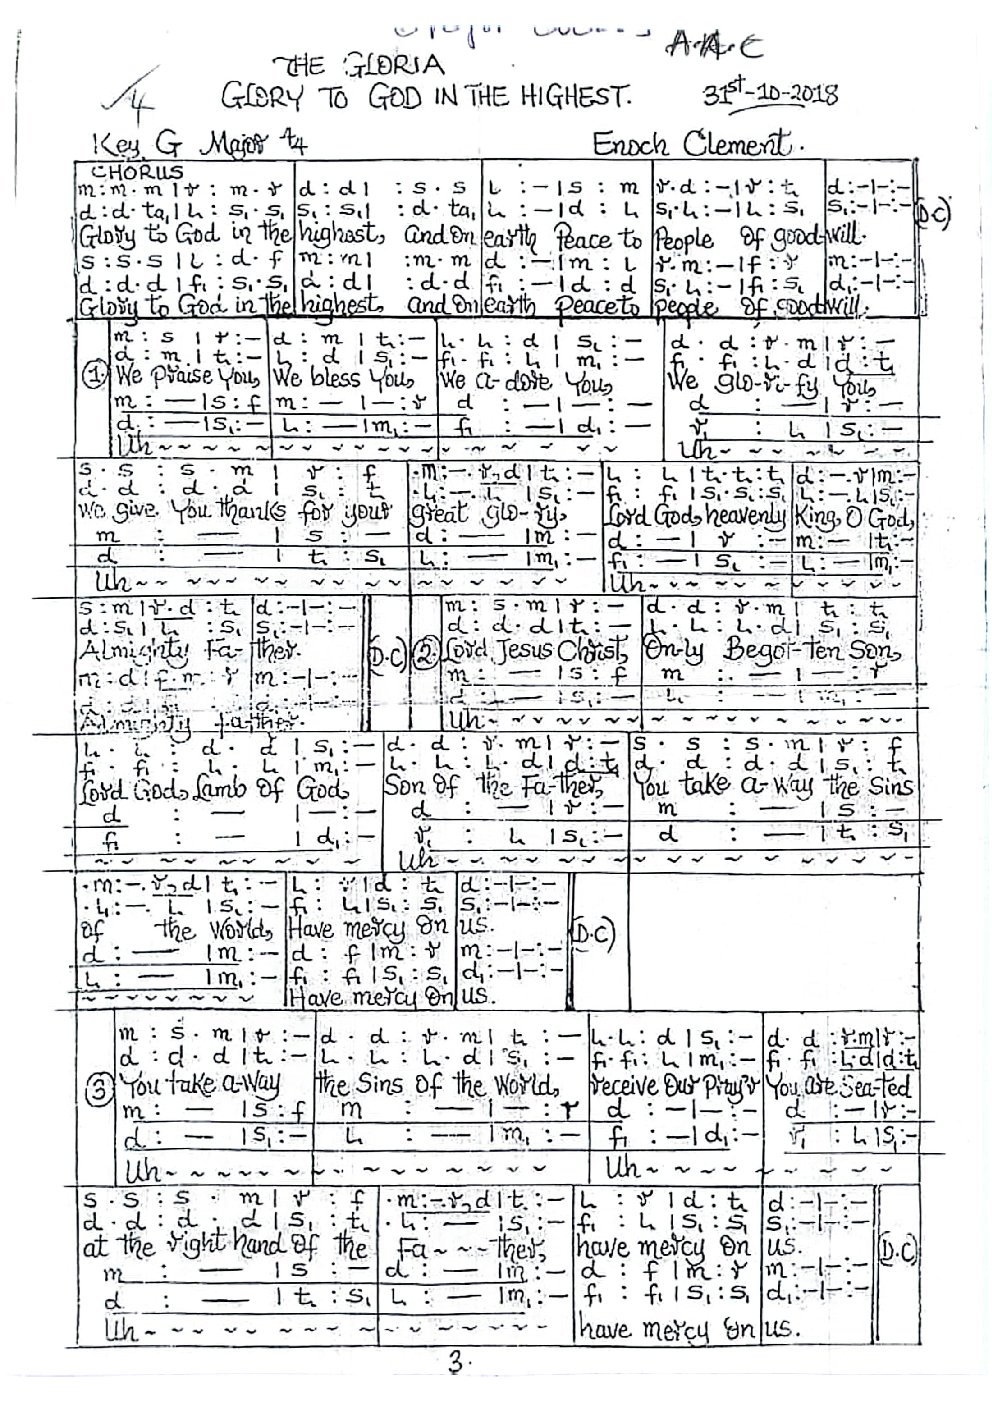 A.A.C
THE GLORIA
GLORY TO GOD IN THE HIGHEST.
31st-10-2018
Key G Major 4/4
Enoch Clement.
CHORUS
m : m · m | r : m · r | d : d | : s · s | l : – | s : m | r · d : – | r : t, | d : – | – : –
d : d · ta, | l, : s, · s, | s, : s, | : d · ta, | l, : – | d : l, | s, · l, : – | l, : s, | s, : – | – : – (D.C)
Glory to God in the highest, and on earth Peace to People of good will.
s : s · s | l : d · f | m : m | : m · m | d : – | m : l | r · m : – | f : r | m : – | – : –
d : d · d | f, : s, · s, | d : d | : d · d | f, : – | d : d | s, · l, : – | f, : s, | d, : – | – : –
Glory to God in the highest and on earth peace to people of good will.
m : s | r : – | d : m | t, : – | l, · l, : d | s, : – | d · d : r · m | r : –
d : m | t, : – | l, : d | s, : – | f, · f, : l, | m, : – | f, · f, : l, · d | d : t,
1. We Praise You, We bless You, We a-dore You, We glo-ri-fy You,
m : — | s : f | m : — | — : r | d : — | — : — | d : — | r : —
d : — | s, : – | l, : — | m, : – | f, : — | d, : – | r, : l, | s, : —
Uh ~ ~ ~ Uh ~ ~ ~
s · s : s · m | r : f | · m : – · r, d | t, : – | l, : l, | t, · t, : t, | d : – · r | m : –
d · d : d · d | s, : t, | · l, : – · l, | s, : – | f, : f, | s, · s, : s, | l, : – · l, | s, : –
We give You thanks for your great glo-ry, Lord God, heavenly King, O God,
m : — | s : — | d : — | m : – | d : — | r : – | m : — | t, : –
d : — | t, : s, | l, : — | m, : – | f, : — | s, : – | l, : — | m, : –
Uh ~ ~ ~ Uh ~ ~ ~
s : m | r · d : t, | d : – | – : – | m : s · m | r : — | d · d : r · m | t, : t,
d : s, | l, : s, | s, : – | – : – | d : d · d | t, : – | l, · l, : l, · d | s, : s,
Almighty Fa-ther. (D.C) 2. Lord Jesus Christ, On-ly Begot-ten Son,
m : d | f · m : r | m : – | – : – | m : — | s : f | m : — | — : r
d : — | s, : – | l, : — | m, : —
Almighty father. Uh ~ ~ ~
l, · l, : d · d | s, : — | d · d : r · m | r : — | s · s : s · m | r : f
f, · f, : l, · l, | m, : – | l, · l, : l, · d | d : t, | d · d : d · d | s, : t,
Lord God, Lamb Of God, Son Of the Fa-ther, You take a-way the Sins
d : — | — : — | d : — | r : – | m : — | s : —
f, : — | d, : – | r, : l, | s, : – | d : — | t, : s,
~ ~ ~ Uh ~ ~ ~
· m : – · r, d | t, : – | l, : r | d : t, | d : – | – : –
· l, : – · l, | s, : – | f, : l, | s, : s, | s, : – | – : –
of the World, Have mercy On us. (D.C)
d : — | m : – | d : f | m : r | m : – | – : –
l, : — | m, : – | f, : f, | s, : s, | d, : – | – : –
~ ~ ~ Have mercy On us.
m : s · m | r : – | d · d : r · m | t, : — | l, · l, : d | s, : – | d · d : r · m | r : –
d : d · d | t, : – | l, · l, : l, · d | s, : – | f, · f, : l, | m, : – | f, · f, : l, · d | d : t,
3 You take a-way the Sins Of the World, receive Our Pray'r You are Sea-ted
m : — | s : f | m : — | — : r | d : – | – : – | d : — | r : –
d : — | s, : – | l, : — | m, : – | f, : – | d, : – | r, : l, | s, : –
Uh ~ ~ ~ Uh ~ ~ ~
s · s : s · m | r : f | · m : – · r, d | t, : – | l, : r | d : t, | d : – | – : –
d · d : d · d | s, : t, | · l, : — | s, : – | f, : l, | s, : s, | s, : – | – : –
at the right hand Of the Fa ~ ~ ~ ther, have mercy On us. (D.C)
m : — | s : — | d : — | m : – | d : f | m : r | m : – | – : –
d : — | t, : s, | l, : — | m, : – | f, : f, | s, : s, | d, : – | – : –
Uh ~ ~ ~ have mercy On us.
3.